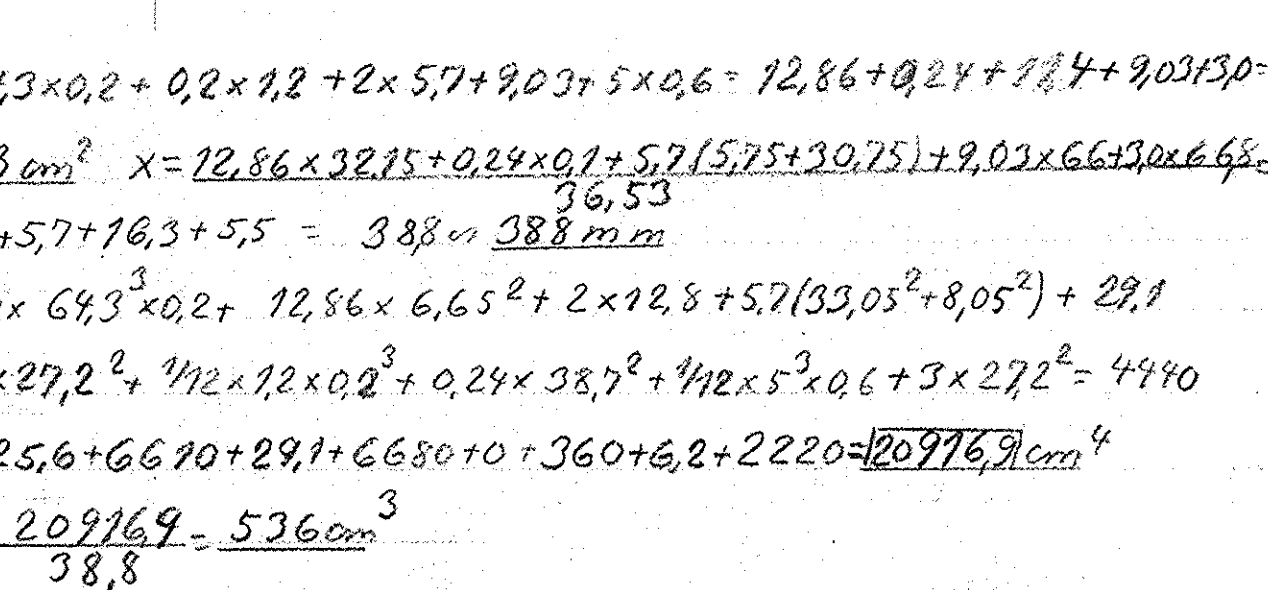 ,3×0,2+ 0,2×1,2 +2× 5,7+9,03+ 5×0,6= 12,86+0,24+11,4+9,03+3,0=
3 cm² x= 12,86×32,15+0,24×0,1+5,7(5,75+30,75)+9,03×66+3,0×66,8=
36,53
+5,7+16,3+5,5 = 38,8 ∽ 388 mm
× 64,3³×0,2+ 12,86× 6,65²+ 2×12,8+5,7(33,05²+8,05²) + 29,1
×27,2²+ 1/12×1,2×0,2³+ 0,24× 38,7²+1/12×5³×0,6+3×27,2²= 4440
25,6+6610+29,1+6680+0+360+6,2+2220= 20916,9 cm⁴
20916,9 = 536cm³
38,8